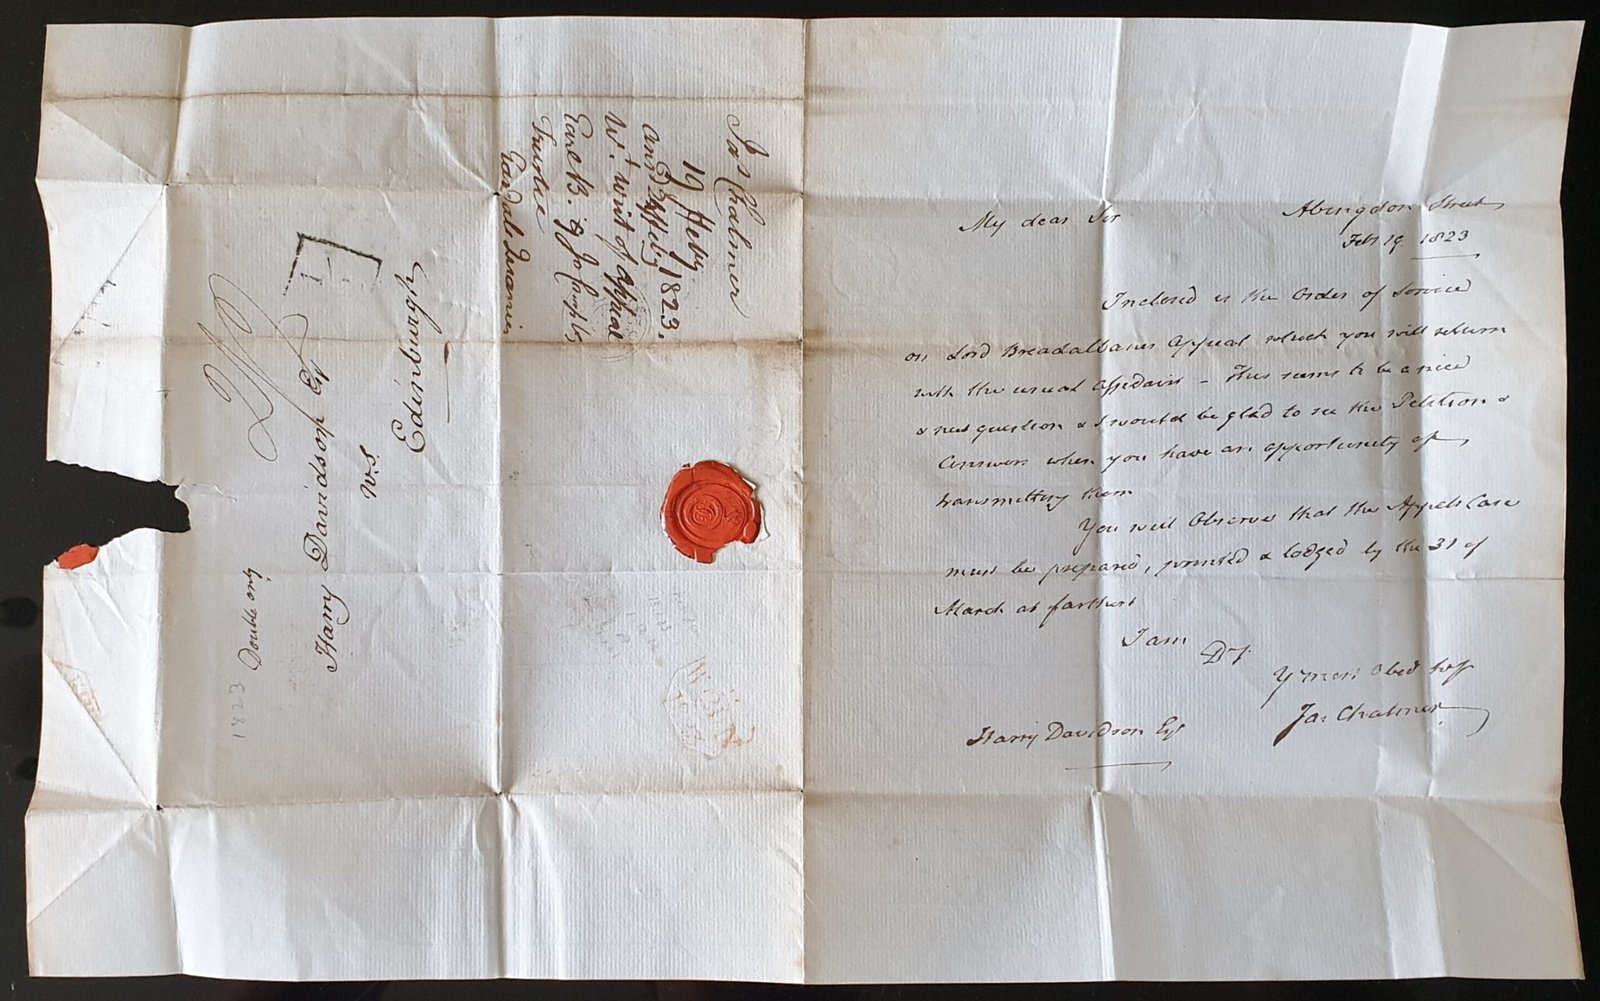 Abingdon Street
Feb 19 1823
My dear Sir
Inclosed is the Order of Service
on Lord Breadalbanes Appeal which you will return
with the usual Affidavit - This seems to be a nice
& new question & I would be glad to see the Petition &
Answers when you have an opportunity of
transmitting them
You will Observe that the Appeals Case
must be prepared, printed & lodged by the 31 of
March at farthest
I am
Dr Sir
Y most Obed
Jas Chalmer
Harry Davidson Esqr
Jas Chalmer
19 Feby 1823.
Wt. writ of appeal
Earl B. Jo Campbell
Trustee
Harry Davidson Esq
W.S.
Edinburgh
Double only
1823